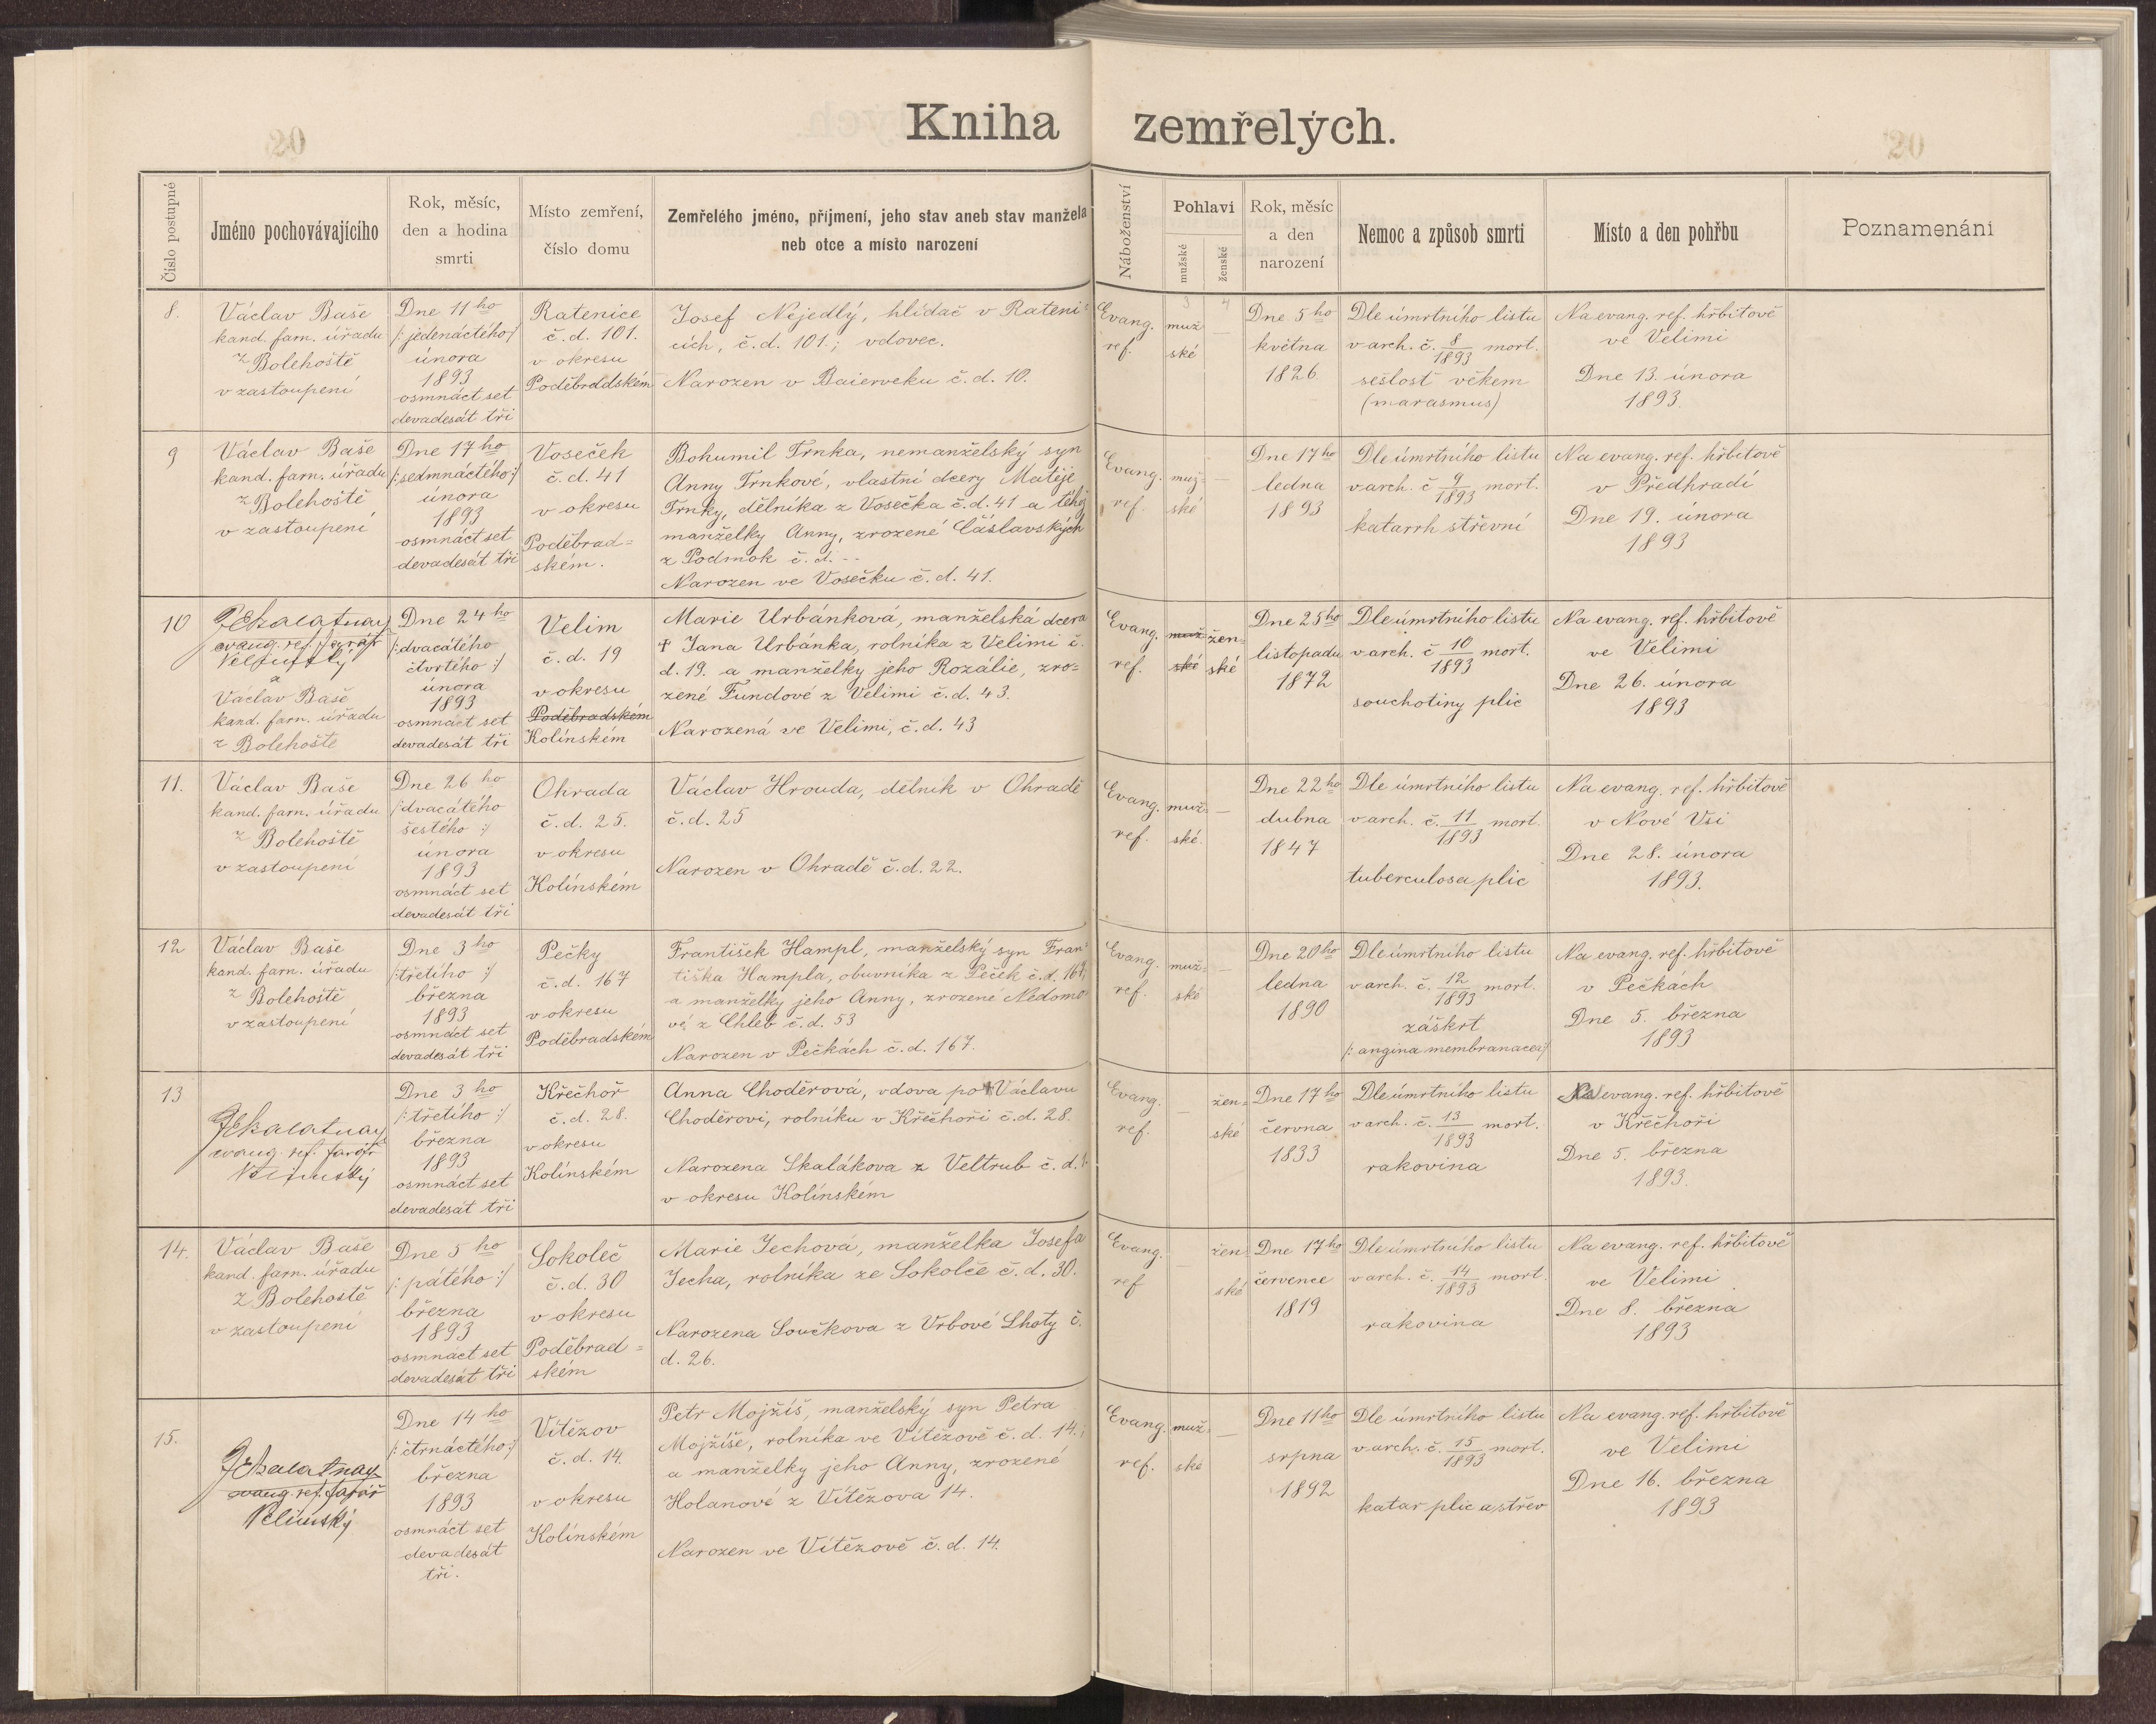 Kniha zemřelých.
20
20
Číslo postupné
Jméno pochovávajícího
Rok, měsíc,
den a hodina
smrti
Místo zemření,
číslo domu
Zemřelého jméno, příjmení, jeho stav aneb stav manžela
neb otce a místo narození
Náboženství
Pohlaví
mužské
ženské
Rok, měsíc
a den
narození
Nemoc a způsob smrti
Místo a den pohřbu
Poznamenání
3
4
8.
Václav Baše
kand. farn. úřadu
z Bolehoště
v zastoupení
Dne 11ho
/: jedenáctého :/
února
1893
osmnáct set
devadesát tři
Ratenice
č. d. 101.
v okresu
Poděbradském
Josef Nejedlý, hlídač v Rateni=
cích, č. d. 101.; vdovec.
Narozen v Baierveku č. d. 10.
Evang.
ref.
muž
ské
—
Dne 5ho
května
1826
Dle úmrtního listu
v arch. č. 8/1893 mort.
sešlost věkem
(marasmus)
Na evang. ref. hřbitově
ve Velimi
Dne 13. února
1893.
9
Václav Baše
kand. farn. úřadu
z Bolehoště
v zastoupení
Dne 17ho
/: sedmnáctého :/
února
1893
osmnáct set
devadesát tři
Voseček
č. d. 41
v okresu
Poděbrad=
ském.
Bohumil Trnka, nemanželský syn
Anny Trnkové, vlastní dcery Matěje
Trnky, dělníka z Vosečka č. d. 41 a téhož
manželky Anny, zrozené Čáslavských
z Podmok č. d. --
Narozen ve Vosečku č. d. 41.
Evang.
ref.
muž=
ské
—
Dne 17ho
ledna
1893
Dle úmrtního listu
v arch. č 9/1893 mort.
katarrh střevní
Na evang. ref. hřbitově
v Předhradí
Dne 19. února
1893
10
evang. ref. farář
Velimský
a
Václav Baše
kand. farn. úřadu
z Bolehoště
Dne 24ho
/: dvacátého
čtvrtého :/
února
1893
osmnáct set
devadesát tři
Velim
č. d. 19
v okresu
Poděbradském
Kolínském
Marie Urbánková, manželská dcera
† Jana Urbánka, rolníka z Velimi č.
d. 19. a manželky jeho Rozálie, zro=
zené Fundové z Velimi č. d. 43.
Narozená ve Velimi, č. d. 43
Evang.
ref.
muž=
ské
žen=
ské
Dne 25ho
listopadu
1872
Dle úmrtního listu
v arch. č 10/1893 mort.
souchotiny plic
Na evang. ref. hřbitově
ve Velimi
Dne 26. února
1893
11.
Václav Baše
kand. farn. úřadu
z Bolehoště
v zastoupení
Dne 26ho
/: dvacátého
šestého :/
února
1893
osmnáct set
devadesát tři
Ohrada
č. d. 25.
v okresu
Kolínském
Václav Hrouda, dělník v Ohradě
č. d. 25
Narozen v Ohradě č. d. 22.
Evang.
ref.
muž=
ské.
—
Dne 22ho
dubna
1847
Dle úmrtního listu
v arch. č. 11/1893 mort.
tuberculosa plic
Na evang. ref. hřbitově
v Nové Vsi
Dne 28. února
1893.
12
Václav Baše
kand. farn. úřadu
z Bolehoště
v zastoupení
Dne 3ho
/: třetího :/
března
1893
osmnáct set
devadesát tři
Pečky
č. d. 167
v okresu
Poděbradském
František Hampl, manželský syn Fran=
tiška Hampla, obuvníka z Peček č. d. 167,
a manželky jeho Anny, zrozené Nedomo=
vé z Chleb č. d. 53
Narozen v Pečkách č. d. 167.
Evang.
ref.
muž=
ské
—
Dne 20ho
ledna
1890
Dle úmrtního listu
v arch. č. 12/1893 mort.
záškrt
/: angina membranacea :/
Na evang. ref. hřbitově
v Pečkách
Dne 5. března
1893
13
evang. ref. farář
Velimský
Dne 3ho
/: třetího :/
března
1893
osmnáct set
devadesát tři
Křečhoř
č. d. 28.
v okresu
Kolínském
Anna Choděrová, vdova po † Václavu
Choděrovi, rolníku v Křečhoři č. d. 28.
Narozena Skalákova z Veltrub č. d.
v okresu Kolínském
Evang.
ref.
—
žen=
ské
Dne 17ho
června
1833
Dle úmrtního listu
v arch. č. 13/1893 mort.
rakovina
Na evang. ref. hřbitově
v Křečhoři
Dne 5. března
1893.
14.
Václav Baše
kand. farn. úřadu
z Bolehoště
v zastoupení
Dne 5ho
/: pátého :/
března
1893
osmnáct set
devadesát tři
Sokoleč
č. d. 30
v okresu
Poděbrad=
ském
Marie Jechová, manželka Josefa
Jecha, rolníka ze Sokolče č. d. 30.
Narozena Součkova z Vrbové Lhoty č.
d. 26.
Evang.
ref
žen
ské
Dne 17ho
července
1819
Dle úmrtního listu
v arch. č. 14/1893 mort.
rakovina
Na evang. ref. hřbitově
ve Velimi
Dne 8. března
1893
15.
evang. ref. farář
Velimský
Dne 14ho
/: čtrnáctého :/
března
1893
osmnáct set
devadesát
tři.
Vítězov
č. d. 14.
v okresu
Kolínském
Petr Mojžíš, manželský syn Petra
Mojžíše, rolníka ve Vítězově č. d. 14.;
a manželky jeho Anny, zrozené
Holanové z Vítězova 14.
Narozen ve Vítězově č. d. 14.
Evang.
ref.
muž=
ské
—
Dne 11ho
srpna
1892
Dle úmrtního listu
v arch. č. 15/1893 mort.
katar plic a střev
Na evang. ref. hřbitově
ve Velimi
Dne 16. března
1893